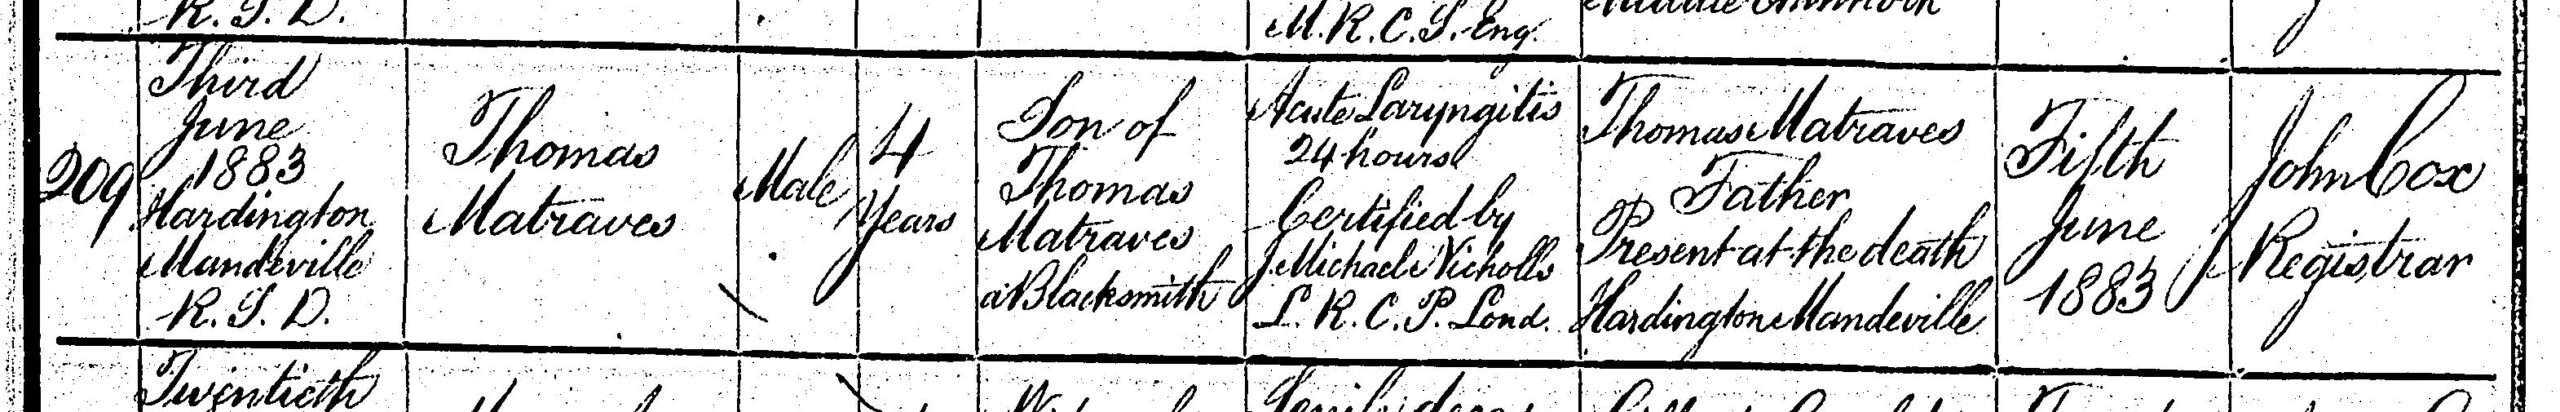 R. S. D.
M. R. C. S. Eng.
209
Third
June
1883
Hardington
Mandeville
R. S. D.
Thomas
Matraves
Male
4
Years
Son of
Thomas
Matraves
a Blacksmith
Acute Laryngitis
24 hours
Certified by
J. Michael Nicholls
L. R. C. P. Lond.
Thomas Matraves
Father
Present at the death
Hardington Mandeville
Fifth
June
1883
John Cox
Registrar
Twentieth